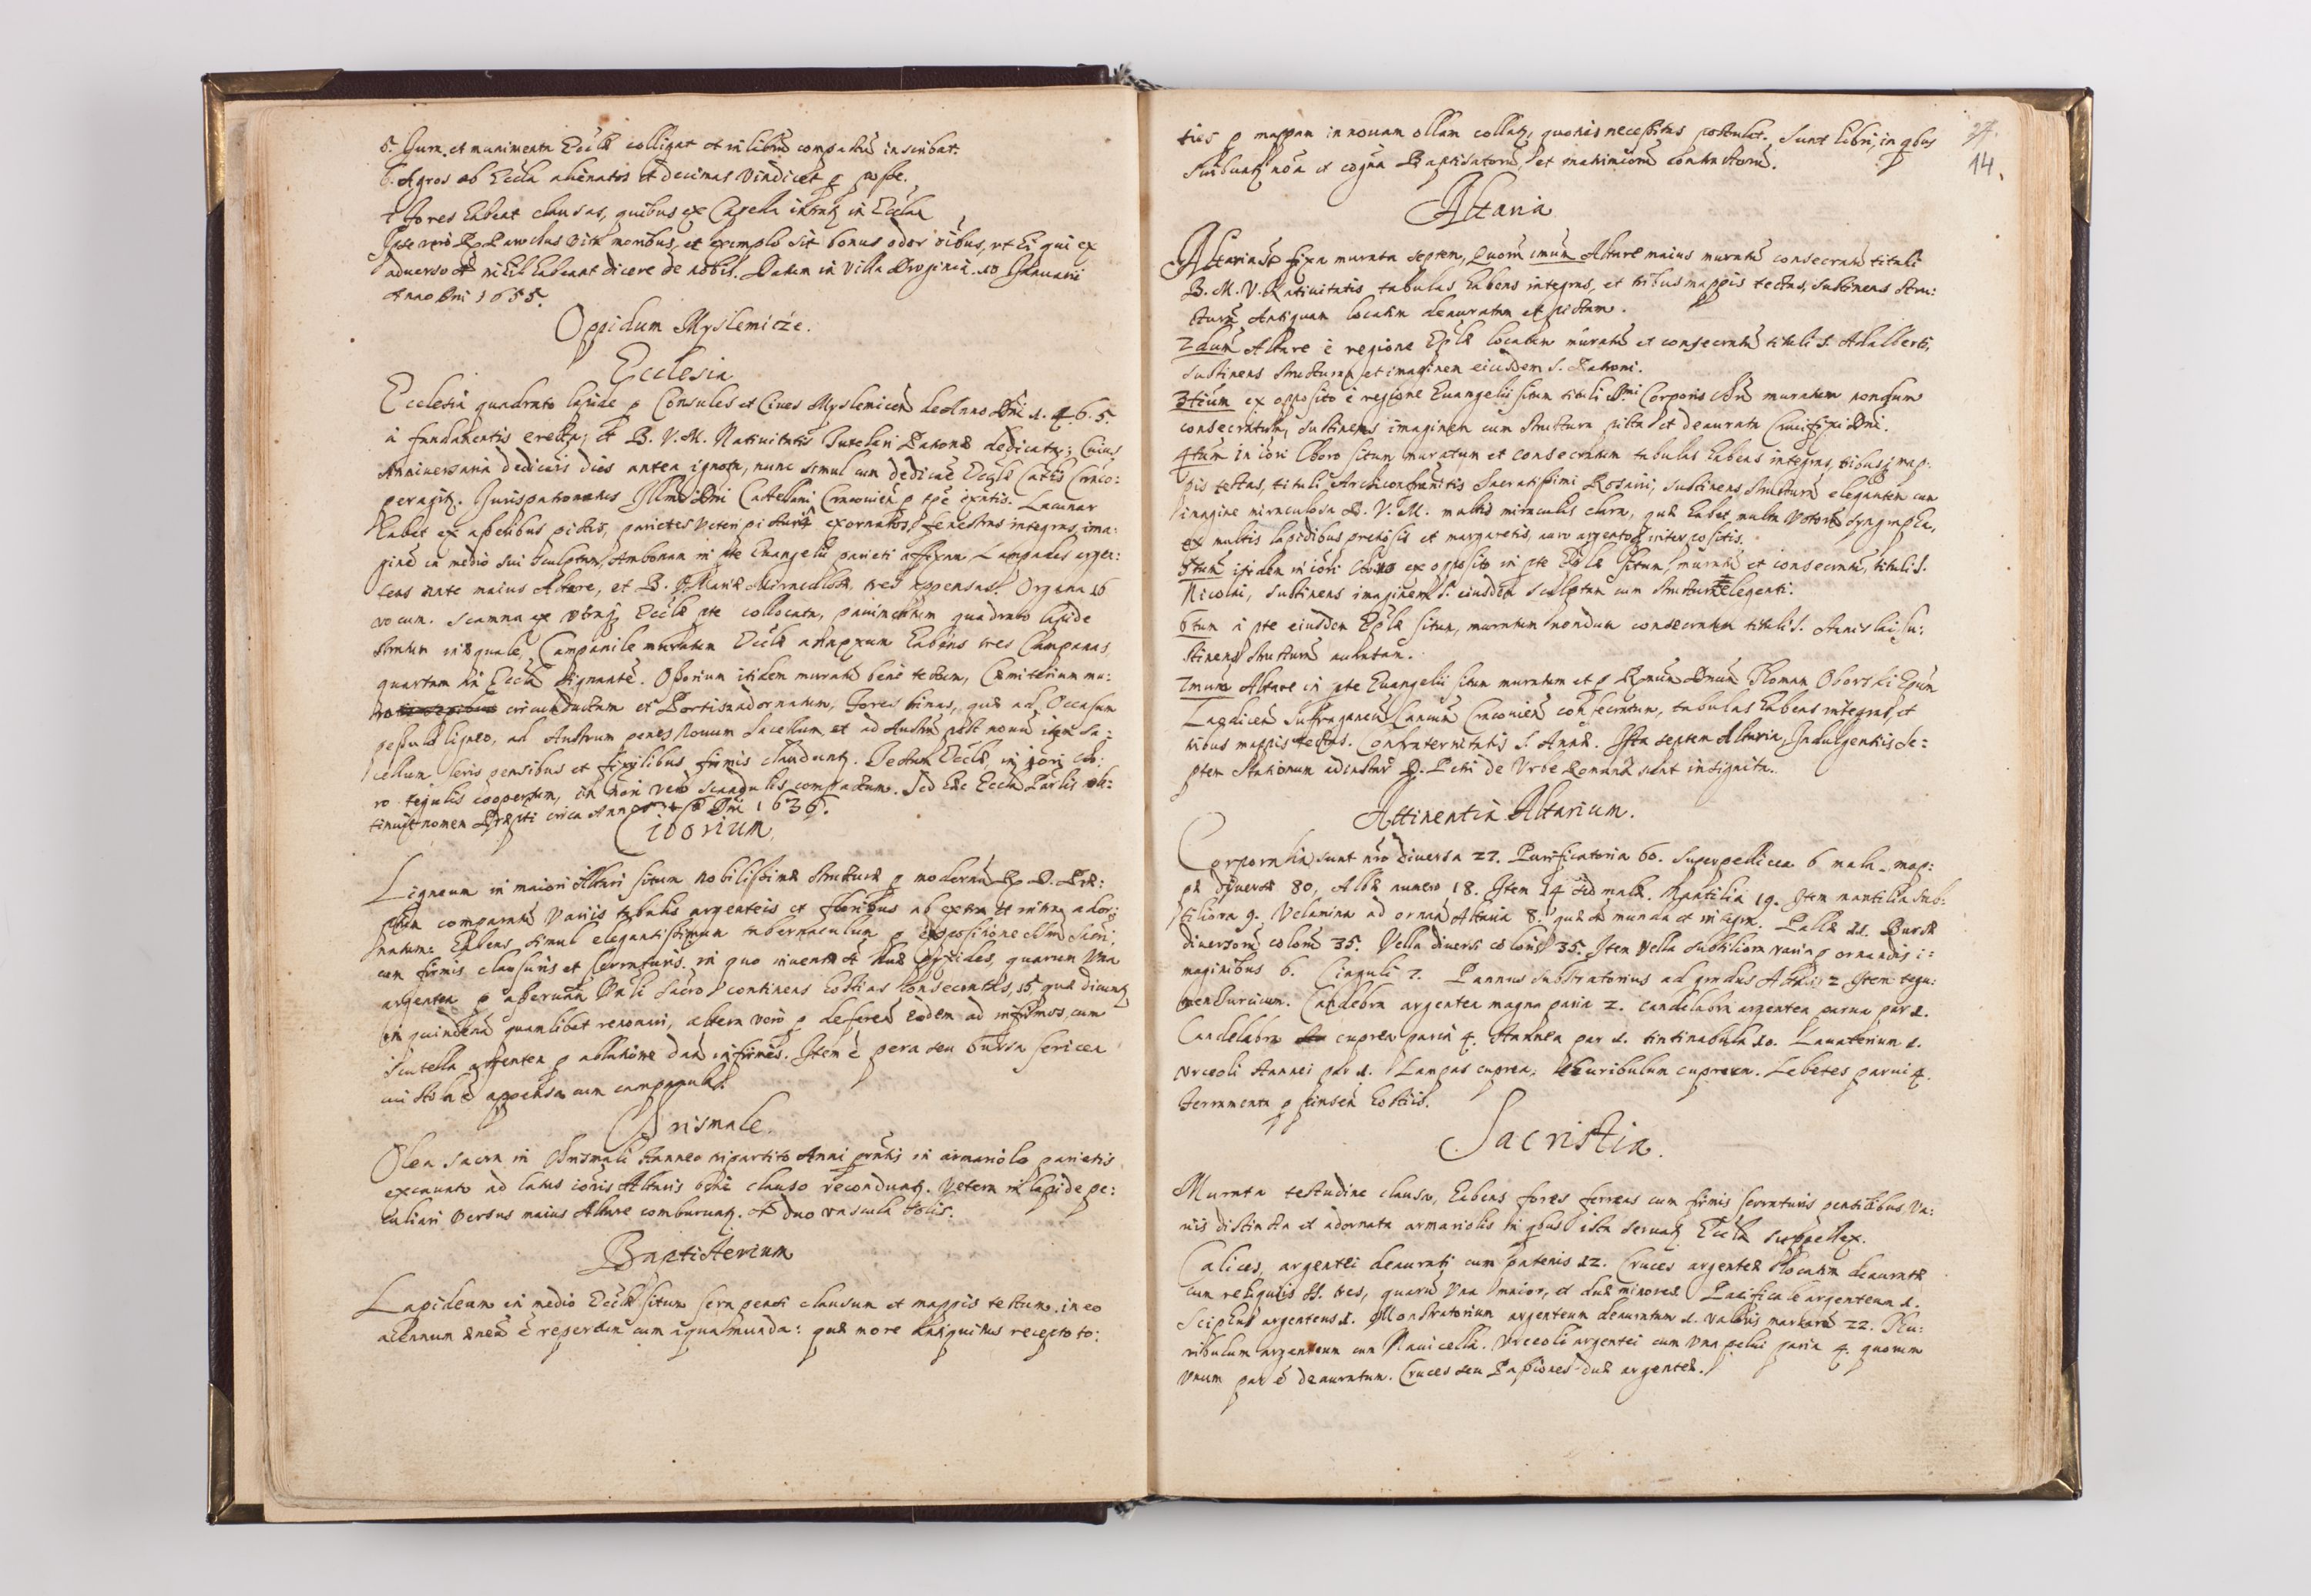 5. Jura et munimenta Eccłæ colligat et in librũ compactũ inscribat.
6. Agros ab Eccła alienatos et decimas vindicet p posse.
7 fores habeat clausas, quibus ex Capella intratʒ in Eccłam
Ipse verò R. Parochus vitæ moribus, et exemplo sit bonus odor oĩbus, ut hi qui ex
adverso st nihil habeant dicere de nobis. Datum in Villa Droginia. 10 Januarii
Anno Dni 1655.
Oppidum Myslemicze.
Ecclesia
Ecclesia quadrato lapide p Consules et Cives Myslemiceñ de Anno Dñi 1.4.6.5.
à fundamentis erecta, et B. V. M. Nativitatis Tutelari Patronæ dedicata; Cuius
Anniversaria dedicãis dies antea ignota, nunc simul cum dedicãe Eccłæ Cathis Craco:
peragitʒ. Jurispatronatus Illmi Dni Castellani Cracovień p tpe exñtis. Lacunar
habet ex asseribus pictis, parietes veteri picturâ exornatos, fenestras integras, ima:
ginẽ in medio sui sculptam, Ambonam in pte Evangelii parieti affixam. Lampades argen:
teas ante maius Altare, et B. V. Mariæ Miraculosæ, tres appensas. Organa 10
vocum. Scamna ex utraqʒ Eccłæ pte collocata, pavimentum quadrato lapide
stratum inæquale, Campanile muratum Eccłæ annexum habens tres Campanas,
quartam in Eccła signantẽ. Ossorium itidem muratũ benè tectum, Cæmiterium mu:
ro circumductum et Portis adornatum, Fores binas, quæ ad Occasum
pessulo ligneo, ad Austrum penes novum Sacellum, et ad Austrũ post novũ item Sa:
cellum seris pensilibus et fixilibus firmis claudunturʒ. Tectum Eccłæ, in iõri Cho:
ro tegulis coopertum, in mõri verò scandulis compactum. Sed hæc Eccła Parlis ob:
tinuit nomen Præpti circa Annum Dñi 1636.
Ciborium
Ligneum in maiori Altari situm nobilissimæ structuræ p modernũ R. D. Præ:
ptum comparatũ variis tabulis argenteis et floribus ab extra et intra ador:
natum: habens simul elegantissimum tabernaculum p expositione Ssmi Sacri,
cum firmis clausuris et serraturis. in quo inventæ st duæ Pyxides, quarum una
argentea p asservan Vnli Sacro continens hostias consecratas, 15. quæ dicunt
in quindenã quamlibet renovari, altera verò p deferen eodem ad infirmos, cum
scutella argentea p ablutione dan infirmis. Item è pera seu bursa sericea
cui stola ẽ appensa cum campanula.
Crismale.
Olea sacra in Chrismali stanneo tripartito Anni pñtis in armariolo parietis
excavato ad latus iõris Altaris benè clauso reconduntʒ. Vetera in lapide pe:
culiari versus maius Altare comburuntʒ. St duo vascula Tolis.
Baptisterium
Lapideum in medio Eccłæ situm sera pendẽti clausum et mappis tectum. in eo
ahennum æneũ ẽ repertum cum aqua munda: quæ more antiquitus recepto to:
27.
14.
ties p mappam in novam ollam collatʒ, quoties necessitas postulat. Sunt libri, in qbus
scribuntʒ noã et cognã Baptisatorũ, et matrimõniũ contractorũ.
Altaria
Altaria st fixa murata septem, Quorũ imum Altare maius muratũ consecratũ tituli
B. M. V. Nativitatis, tabulas habens integras, et tribus mappis tectus, sustinens stru:
cturã Antiquam locatim deauratam et pictam.
2dum Altare è regione Eplæ locatum muratũ et consecratũ tituli S. Adalberti,
sustinens structuram et imaginem eiusdem S. Patroni.
3tium ex opposito è regione Evangelii situm tituli Ssmi Corporis Chri muratum nondum
consecratum, sustinens imaginem cum structura picta et deaurata Crucifixi Dñi.
4tum in iõri Choro situm, muratum et consecratum tabulas habens integras, tribusqʒ map:
pis tectas, tituli Archiconfrãnitis Sacratissimi Rosarii, sustinens structurã elegantem cum
imagine miraculosa B. V. M. multis miraculis clara, quæ habet multa votorũ syngrapha,
ex multis lapidibus pretiosis et margaretis, auro argentoqʒ intercositis.
5tum itidem in iõri Choro ex opposito in pte Eplæ situm, muratũ et consecratũ, tituli S.
Nicolai, sustinens imaginem S. eiusdem sculptam cum structura eleganti.
6tum à pte eiusdem Eplæ situm, muratum nondum consecratum tituli S. Stanislai, su:
stinens structurã auratam.
7mum Altare in pte Evangelii situm muratum et p Rmũm Dnũm Thomam Oborski Epũm
Laodiceñ Suffraganeũ Canũm Cracovień consecratum, tabulas habens integras, et
tribus mappis tectas. Confraternitatis S. Annæ. Ista septem Altaria, Indulgentiis se:
ptem Stationum ad instar D. Petri de Urbe Romana sunt insignita.
Attinentia Altarium.
Corporalia sunt nro diversa 22. Purificatoria 60. Superpellicea 6 mala, map:
pæ diversæ 80, Albæ numero 18. Item 14 sed malæ. Mantilia 19. Item mantilia sub:
tiliora 9. Velamina ad ornan Altaria 8. quæ st munda et integra. Pallæ 21. Bursæ
diversorũ colorũ 35. Vella diversi coloris 35. Item Vella subtiliora varia p ornandis i:
maginibus 6. Cinguli 7. Pannus substratorius ad gradus Altaris 2 Item tegu:
men Turcicum. Candelabra argentea magna paria 2. candelabra argentea parua par 1.
Candelabra cuprea paria 4. Stannea par 1. tintinabula 10. Lavaterium 1.
Urceoli stannei par 1. Lampas cuprea, Thuribulum cupreum. Lebetes parui 4.
Ferramenta p pinsen hostiis.
Sacristia.
Murata testudine clausa, habens fores ferreas cum firmis serraturis pensilibus, va:
riis distincta et adornata armariolis in qbus ista servatʒ Eccłæ suppellex.
Calices, argentei deaurati cum patenis 12. Cruces argenteæ locatim deauratæ
cum reliquiis SS. tres, quarũ una maior, et duæ minores. Pacificale argenteum 1.
Sciphus argenteus 1. Monstratorium argenteum deauratum 1. valoris marcarũ 22. Thu:
ribulum argenteum cum Navicella. Urceoli argentei cum una pelui paria 4. quorum
unum par ẽ deauratum. Cruces seu Passiones duæ argenteæ.